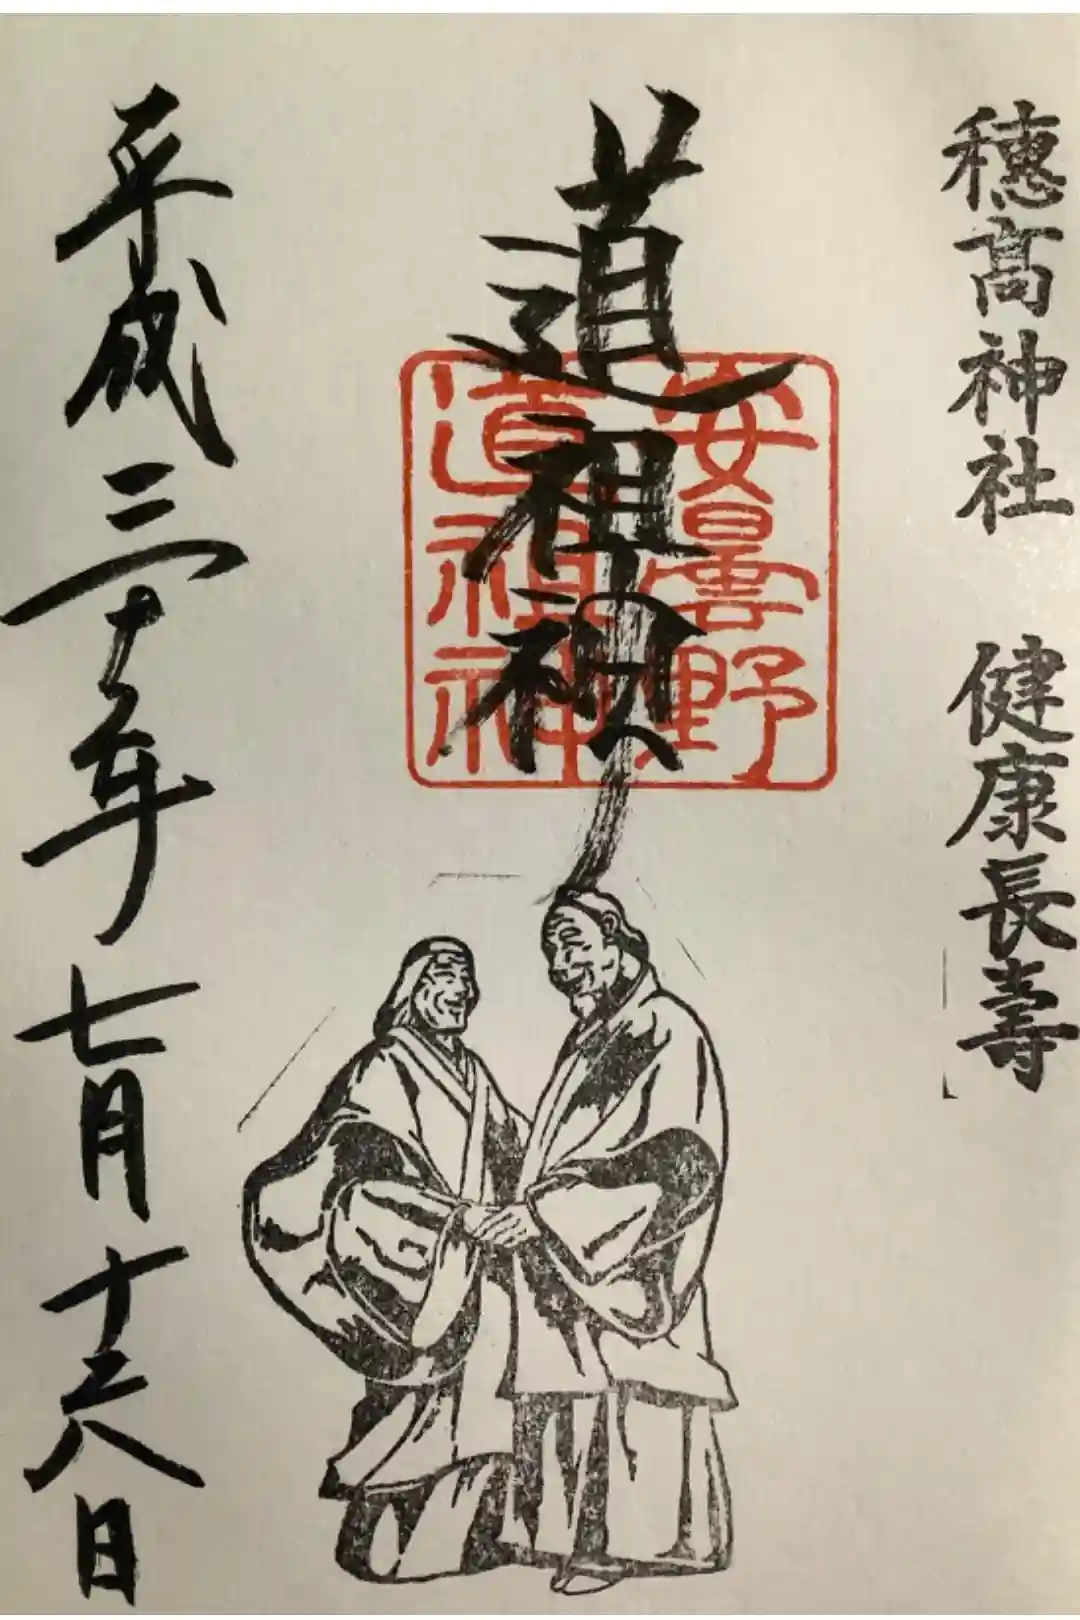 穂高神社　健康長壽
道祖神
安曇野
道祖神
平成三十年七月十六日